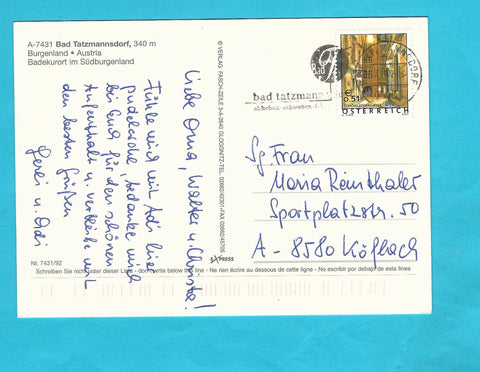 A-7431 Bad Tatzmannsdorf, 340 m
Burgenland • Austria
Badekurort im Südburgenland
Liebe Oma, Walter u. Christa!
Fühle mich mit Adi hier
pudelwohl, bedanke mich
bei Euch für den schönen
Aufenthalt u. verbleibe mit
den besten Grüßen
u. Adi
Nr. 7431/92
Schreiben Sie nicht unter dieser Linie - don't write below the line - Ne rien écrire au dessous de cette ligne - No escribir por debajo de esta línea
© VERLAG FASCH-ZEILE
PRESS
bad tatzmann
€ 0,51
ÖSTERREICH
Frau
Maria Reinthaler
Sportplatzstr. 50
A - 8580 Köflach